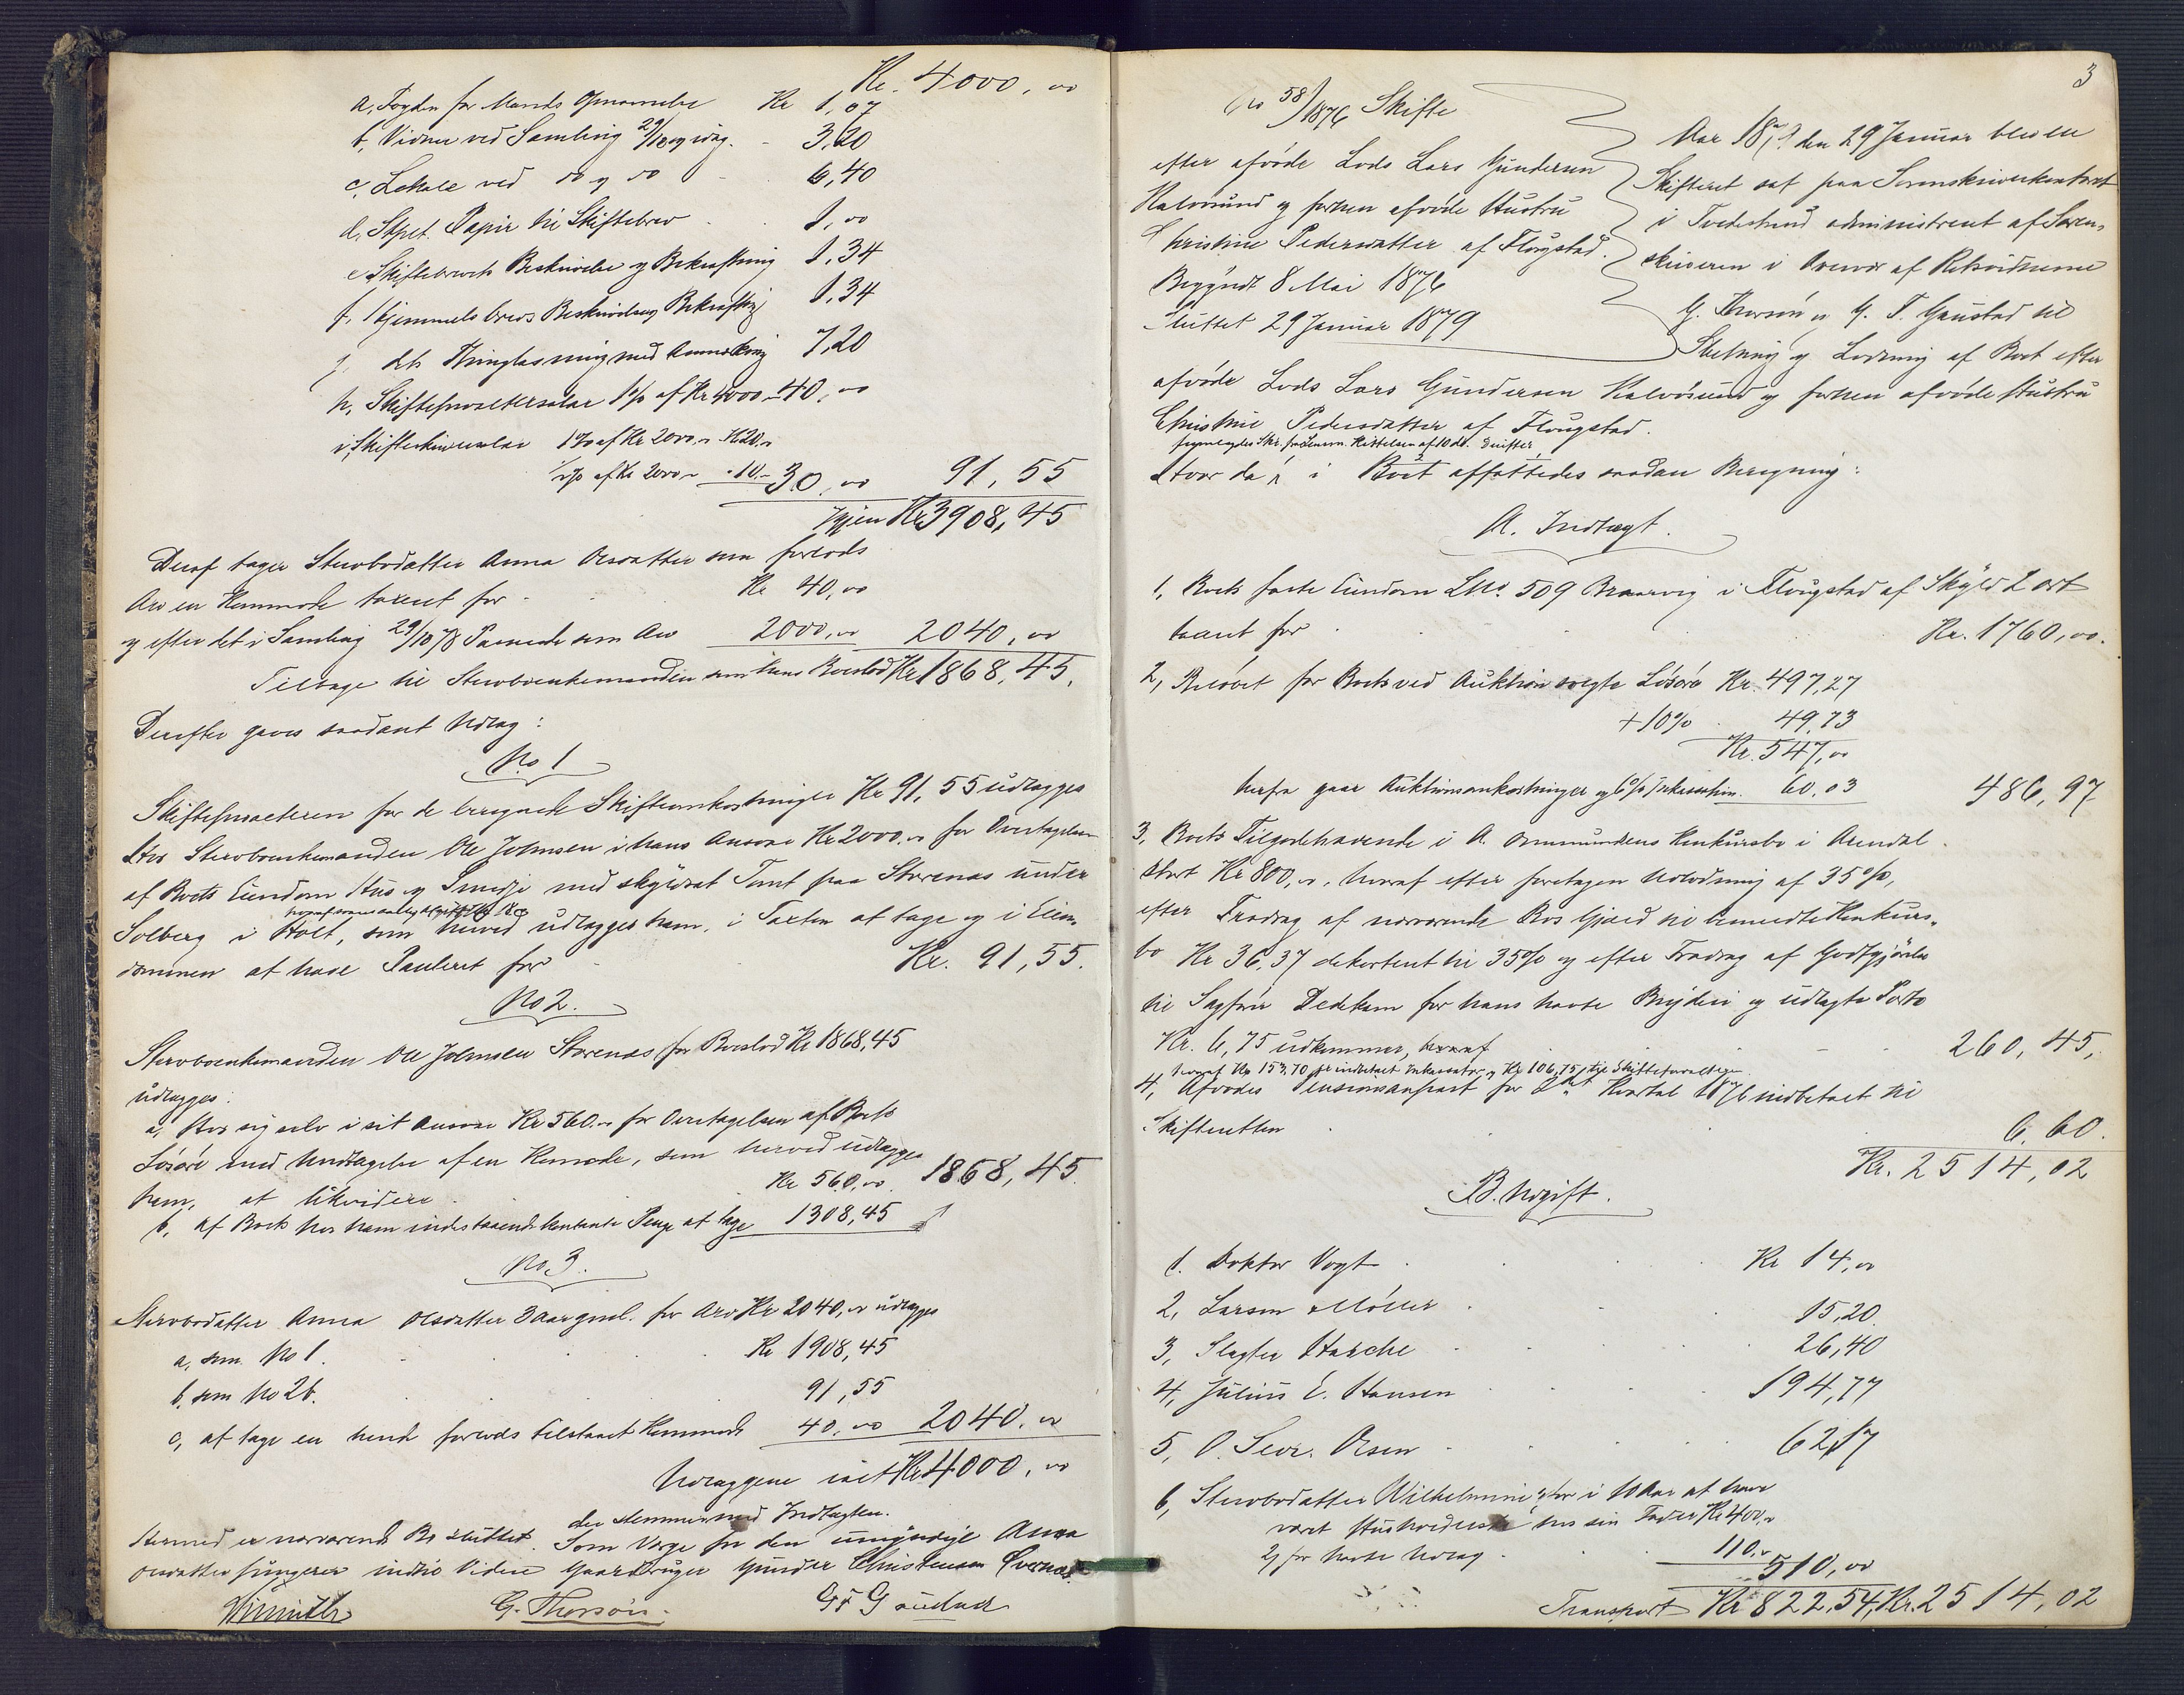 Kr. 4000,00
a, Fogden for Mænds Opnævnelse Kr 1,07
b, Vidner ved Samling 29/10 og idag. - 3,20
c, Lokale ved do og do - 6,40
d, Stpet. Papir til Skiftebrev 1,00
e, Skiftebrevets Beskrivelse og Bekræftning 1,34
f, Hjemmelsbrevs Beskrivelse og Bekræftng 1,34
g, dts Thinglæsning med Anmærkning 7,20
h, Skifteforvaltersalær 1% af Kr 4000 - 40,00
i, Skifteskriversalær 1% af Kr 2000,00 Kr 20,00
½% af Kr 2000,00 - 10 - 30,00 91,55
Igjen Kr 3908,45
Deraf tager Stervbodatter Anna Olsdatter som forlods
Arv en Kommode taxeret for - Kr 40,00
og efter det i Samling 29/10 78 Passerede som Arv 2000,00 2040,00
Tilbage til Stervboenkemanden som hans Boeslod Kr 1868,45.
Derefter gaves saadant Udlæg:
No 1
Skifteforvalteren for de beregnede Skifteomkostninger Kr 91,55 udlægges
Hos Stervboenkemanden Ole Johnsen i hans Ansvar Kr 2000,00 for Overtagelsen
af Boets Eiendom Hus og Smedje med skyldsat Tomt paa Storenæs under
Solberg i Holt, som herved udlægges ham, i Taxten at tage og i Eien-
dommen at have Panteret for - Kr. 91,55.
No 2.
Stervboenkemanden Ole Johnsen Storenæs for Boeslod Kr 1868,45
udlægges:
a, Hos sig selv i sit Ansvar Kr 560,00 for Overtagelsen af Boets
Løsøre med Undtagelse af en Komode, som herved udlægges
ham, at likvidere - Kr 560,00 1868,45.
b, af Boets hos ham indestaaende kontante Penge at tage 1308,45
No 3.
Stervbodatter Anna Olsdatter 3 Aar gml. for Arv Kr 2040,00 udlægges
a, som No 1. Kr 1908,45
b, som No 2b. 91,55
c, at tage en hende forlods tilstaaet Kommode 40,00 2040,00
Udlæggene ialt Kr 4000,00
der stemmer med Indtægten.
Hermed er nærværende Bo sluttet. Som Værge for den umyndige Anna
Olsdatter fungerer indtil Videre Gaardbruger Gunder Christensen
G. Thorsøn. G F Goustad
3
No 58/1876 Skifte
efter afdøde Lods Lars Gundersen
Kalvøsund og forhen afdøde Hustru
Christine Pedersdatter af Flougstad.
Begyndt 8 Mai 1876
Sluttet 29 Januar 1879
Aar 1879 den 29 Januar blev en
Skifteret sat paa Sorenskriverkontoret
i Tvedestrand administreret af Soren-
skriveren i Overvær af Retsvidnerne
G. Thorsøn og G. F. Goustad til
Slutning og Lodning af Boet efter
afdøde Lods Lars Gundersen Kalvøsund og forhen afdøde Hustru
Christine Pedersdatter af Flougstad.
Hvor da i Boet affattedes saadan Beregning:
A. Indtægt.
1, Boets faste Eiendom LNo. 509 Braarvig i Flougstad af Skyld 2 ort
taxeret for . Kr. 1760,00.
2, Beløbet for Boets ved Auktion solgte Løsøre Kr. 497,27
+ 10% 49,73
Kr. 547,00
herfra gaar Auktionsomkostninger og 6% Inkassation. 60,03 486,97
3, Boets Tilgodehavende i A. Ommundsens Konkursbo i Arendal
stort Kr 800,00, hvoraf efter foretagen Udlodning af 35%,
efter Fradrag af nærværende Bos Gjæld til bemeldte Konkurs-
bo Kr 36,37 dekorteret til 35% og efter Fradrag af Godtgjørelse
til Sagfører Dedekam for hans havte Bryderi og udlagte Porto
Kr. 6,75 udkommer, 260,45,
hvoraf Kr 153,70 er indbetalt Inkassator og Kr 106,75 til Skifteforvalteren
4, Afdødes Pensionsanpart for 2det Kvartal 1876 indbetalt til
Skifteretten 6,60.
Kr. 2514,02
B. Udgift.
1. Doktor Vogt Kr 14,00
2, Larsen Møller 15,20.
3, Slagter Hasche 26,40
4, Julius E. Hansen 194,77
5, O. Sevr. Olsen 62,17
6, Stervbodatter Wilhelmine, 1, for i 10 Aar at have
været Husholderske hos sin Fader Kr 400,00
2, for havte Udlæg 110,00 510,00
Transport Kr 822,54, Kr. 2514,02